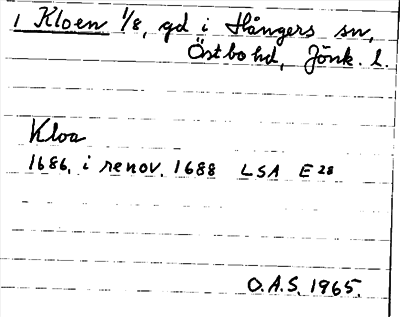 1 Kloen 1/8, gd i Hångers sn,
Östbo hd, Jönk. l.
Kloa
1686, i renov. 1688 LSA E 28
O.A.S. 1965.